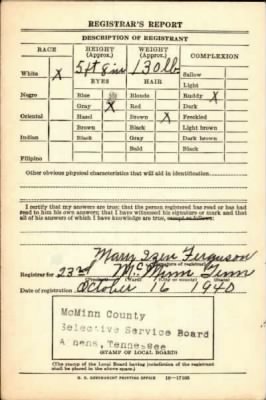 REGISTRAR'S REPORT
DESCRIPTION OF REGISTRANT
RACE HEIGHT (Approx.) WEIGHT (Approx.) COMPLEXION
White X 5 ft 8 in 130 lb Sallow
EYES HAIR Light
Negro Blue Blonde Ruddy X
Gray X Red Dark
Oriental Hazel Brown X Freckled
Brown Black Light brown
Indian Black Gray Dark brown
Bald Black
Filipino
Other obvious physical characteristics that will aid in identification
I certify that my answers are true; that the person registered has read or has had
read to him his own answers; that I have witnessed his signature or mark and that
all of his answers of which I have knowledge are true, except as follows:
Mary Izen Ferguson
(Signature of registrar)
Registrar for 23rd Mc Minn Tenn
(Precinct) (Ward) (City or county) (State)
Date of registration October 16 1940
McMinn County
Selective Service Board
A ens, Tennessee
(STAMP OF LOCAL BOARD)
(The stamp of the Local Board having jurisdiction of the registrant
shall be placed in the above space.)
U. S. GOVERNMENT PRINTING OFFICE 16—17105